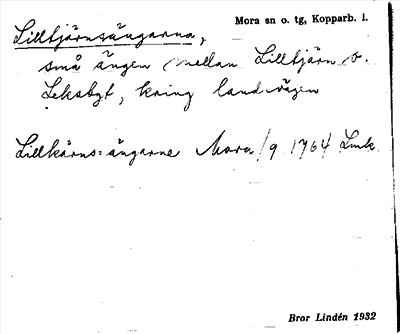 Mora sn o. tg, Kopparb. l.
Lilltjärnsängarna,
små ängar mellan Lilltjärn o.
Leksbgt, kring landsvägen
Lillkärns=ängarne Mora /9 1764 Lmk.
Bror Lindén 1932